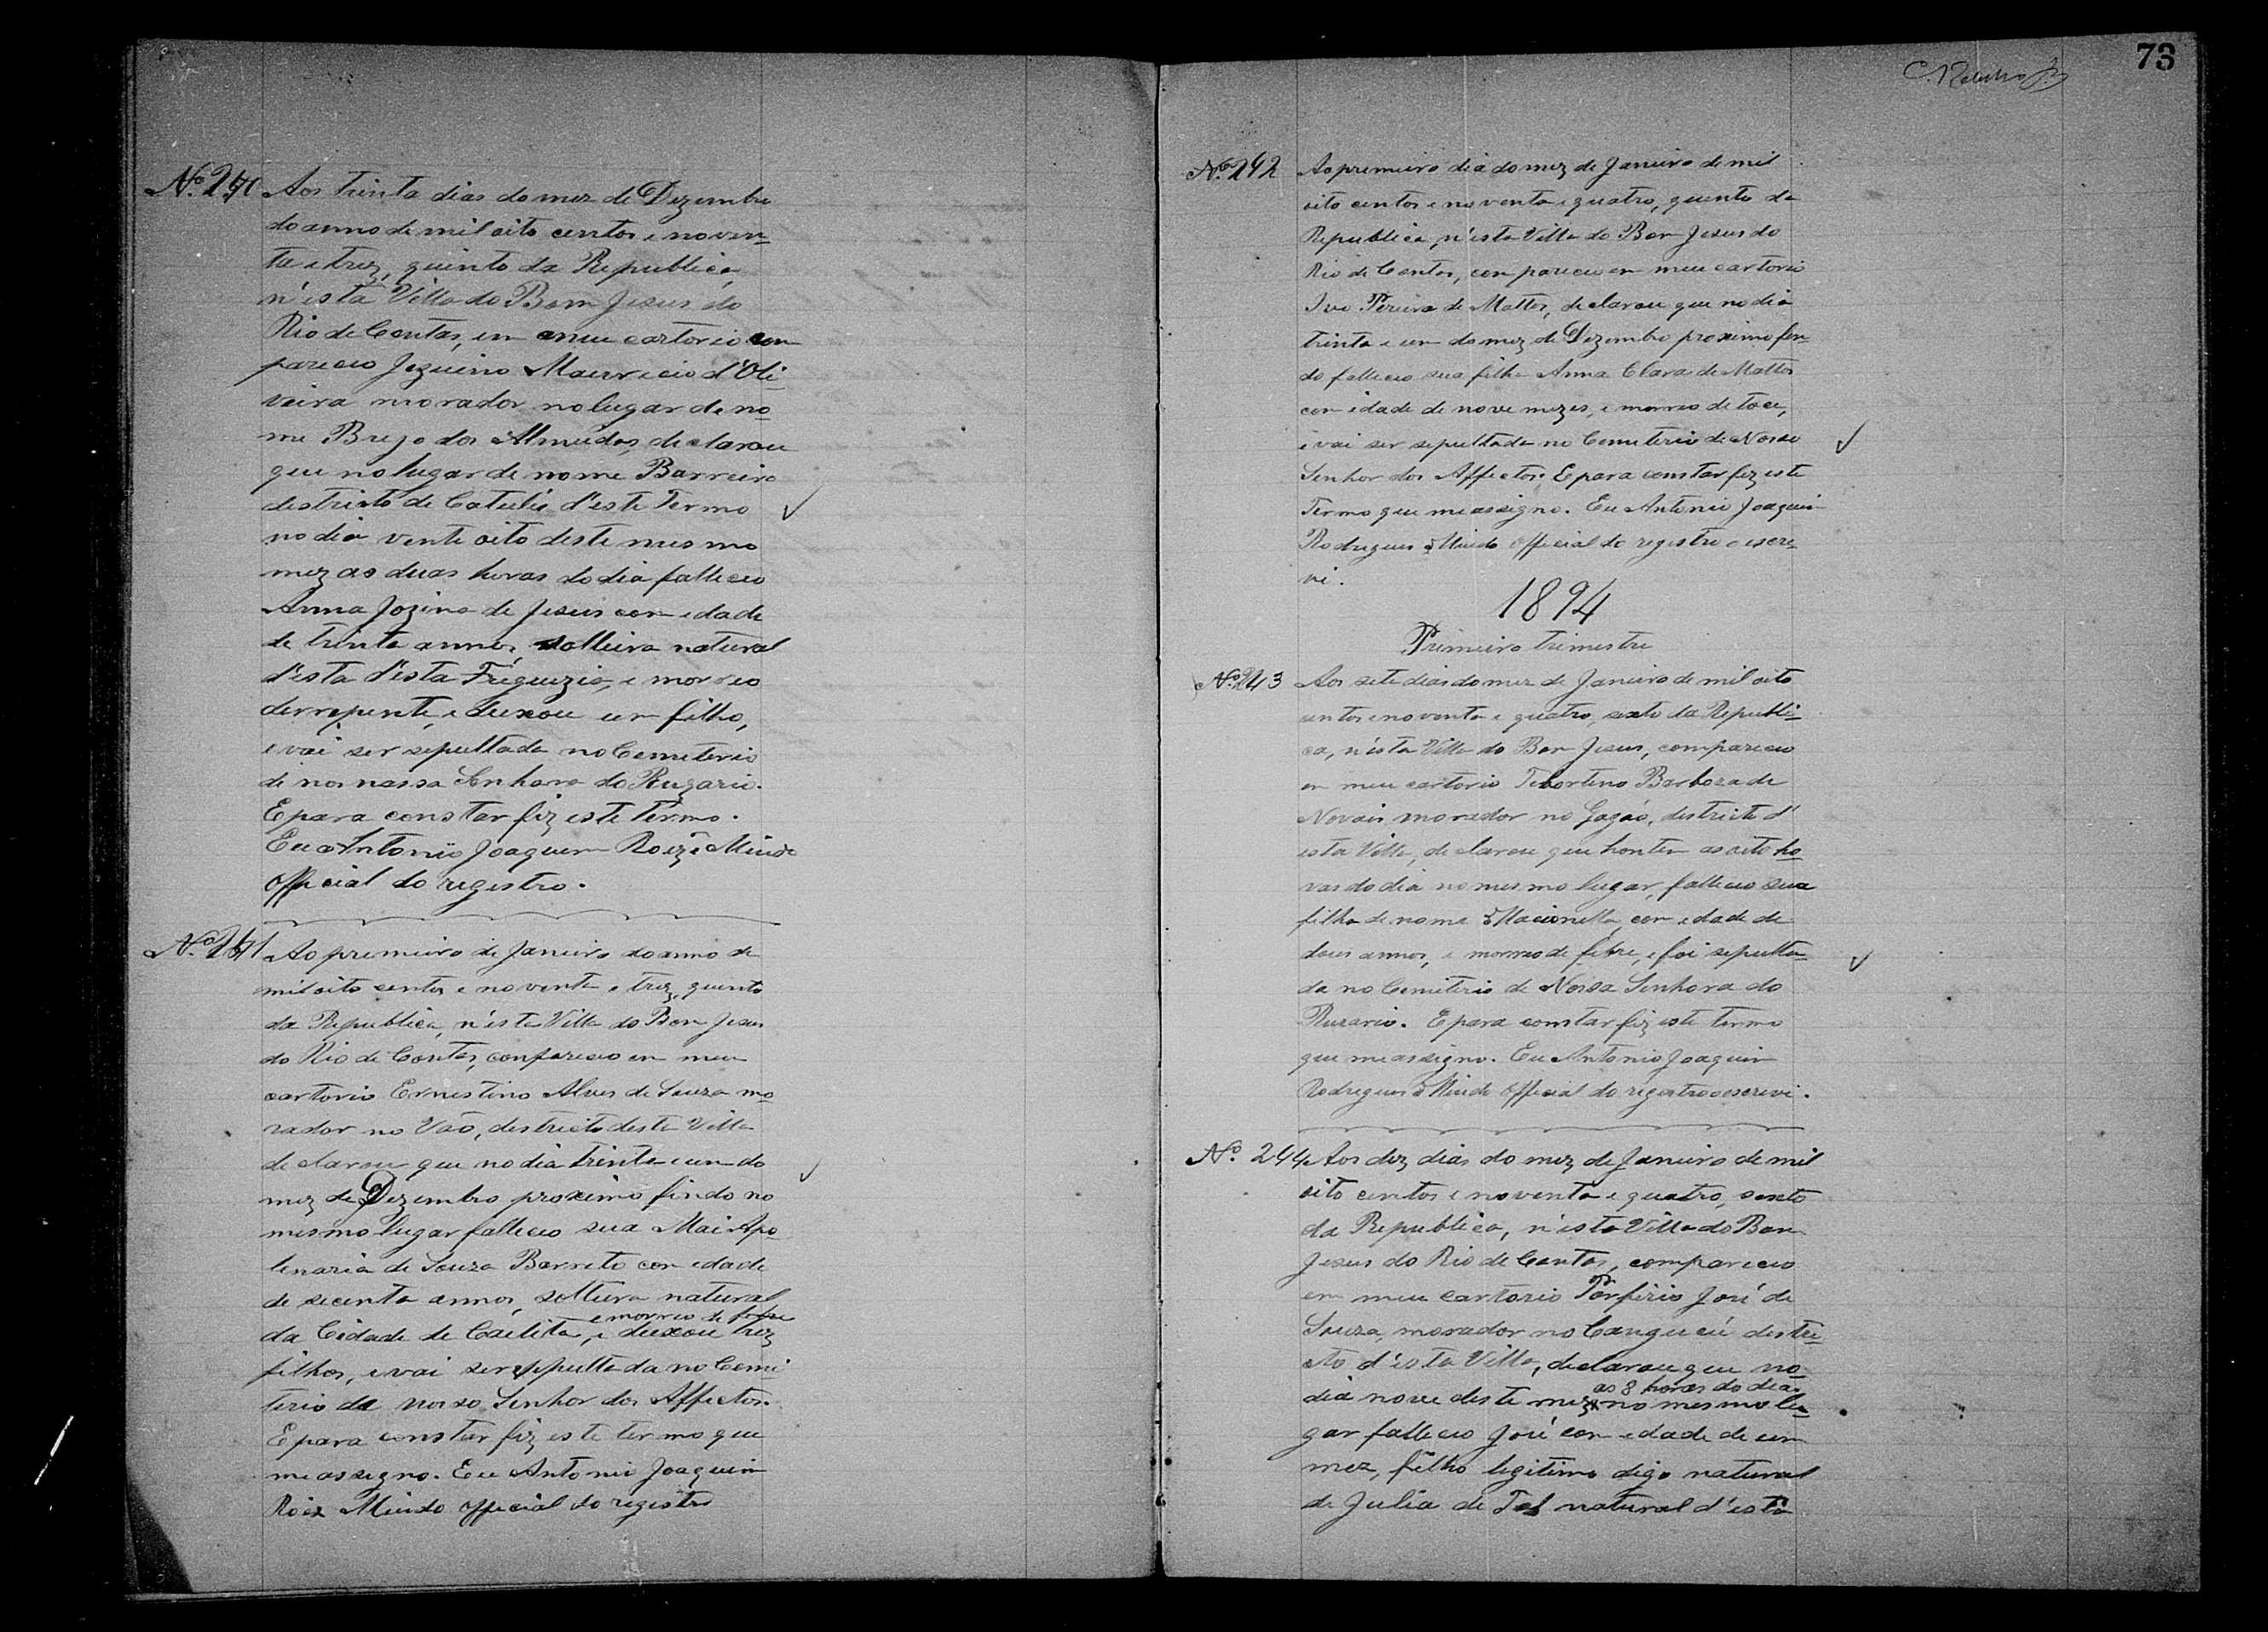 73
Nº 240 Aos trinta dias do mez de Dezembro
do anno de mil oito centos e noven-
ta e trez, quinto da Republica,
n'esta Villa do Bom Jesus do
Rio de Contas, em meu cartorio com
pareceo Jezuino Mauricio d'Oli-
veira morador no lugar de no-
me Brejo dos Almeidas, declarou
que no lugar de nome Barreiro
destricto de Catulés d'este Termo
no dia vente oito deste mesmo
mez as duas horas do dia falleceo
Anna Jozina de Jesus com edade
de trinta annos, solteira natural
d'esta d'esta Freguezia, e morreo
derrepente, e deixou um filho,
e vai ser sepultada no Cemeterio
de nos nassa Senhora do Ruzario.
E para constar fiz este termo.
Eu Antonio Joaquim Roiz Miudo
official do registro.
Nº 241 Ao premeiro de Janeiro do anno de
mil oito centos e noventa e trez, quento
da Republica, n'esta Villa do Bom Jesus
do Rio de Contas, compareceo em meu
cartorio Ernestino Alves de Souza mo-
rador no Vão, destricto desta Villa
declarou que no dia trinta e um do
mez de Dezembro proximo findo no
mesmo lugar falleceo sua Mai Apo-
lenaria de Souza Barreto com edade
de secenta annos, solteira natural
e morreo de febre
da Cidade de Caetité, e deixou trez
filhos, e vai ser sepultada no Cemi
terio de nosso Senhor dos Affectos.
E para constar fiz este termo que
me assegno. Eu Antonio Joaquim
Roiz Miudo official do registro
Nº 242 Ao premeiro dia do mez de Janeiro de mil
oito centos e noventa e quatro, quento da
Republica, n'esta Villa do Bom Jesus do
Rio de Contas, compareceu em meu cartorio
Ivo Pereira de Mattos, declarou que no dia
trinta e um do mez de Dezembro proximo fin-
do falleceo sua filha Anna Clara de Mattos
com idade de nove mezes, e morreo de toce,
e vai ser sepultada no Cemeterio de Nosso
Senhor dos Affectos. E para constar fiz este
Termo que me assigno. Eu Antonio Joaquim
Rodrigues Miudo official do registro o escre-
vi.
1894
Primeiro trimestre
Nº 243 Aos sete dias do mez de Janeiro de mil oito
centos e noventa e quatro, sexto da Republi-
ca, n'esta Villa do Bom Jesus, compareceu
em meu cartorio Teborteno Barboza de
Novais, morador no Gagáo, districto d'
esta Villa, declarou que hontem as oito ho-
ras do dia no mesmo lugar, falleceo sua
filha de nome com edade de
dous annos, e morreo de febre, e foi sepulta-
da no Cemiterio de Nossa Senhora do
Ruzario. E para constar fiz este termo
que me assigno. Eu Antonio Joaquim
Rodrigues Miudo official do registro o escrevi.
Nº 244 Aos dez dias do mez de Janeiro de mil
oito centos e noventa e quatro, sexto
da Republica, n'esta Villa do Bom
Jesus do Rio de Contas, compareceo
em meu cartorio Porfirio José de
Souza, morador no Cangucú destri-
cto d'esta Villa, declarou que no
as 8 horas do dia
dia nove deste mez no mesmo lu-
gar falleceo José com edade de um
mez, filho legitimo digo natural
de Julia de Tal natural d'esta